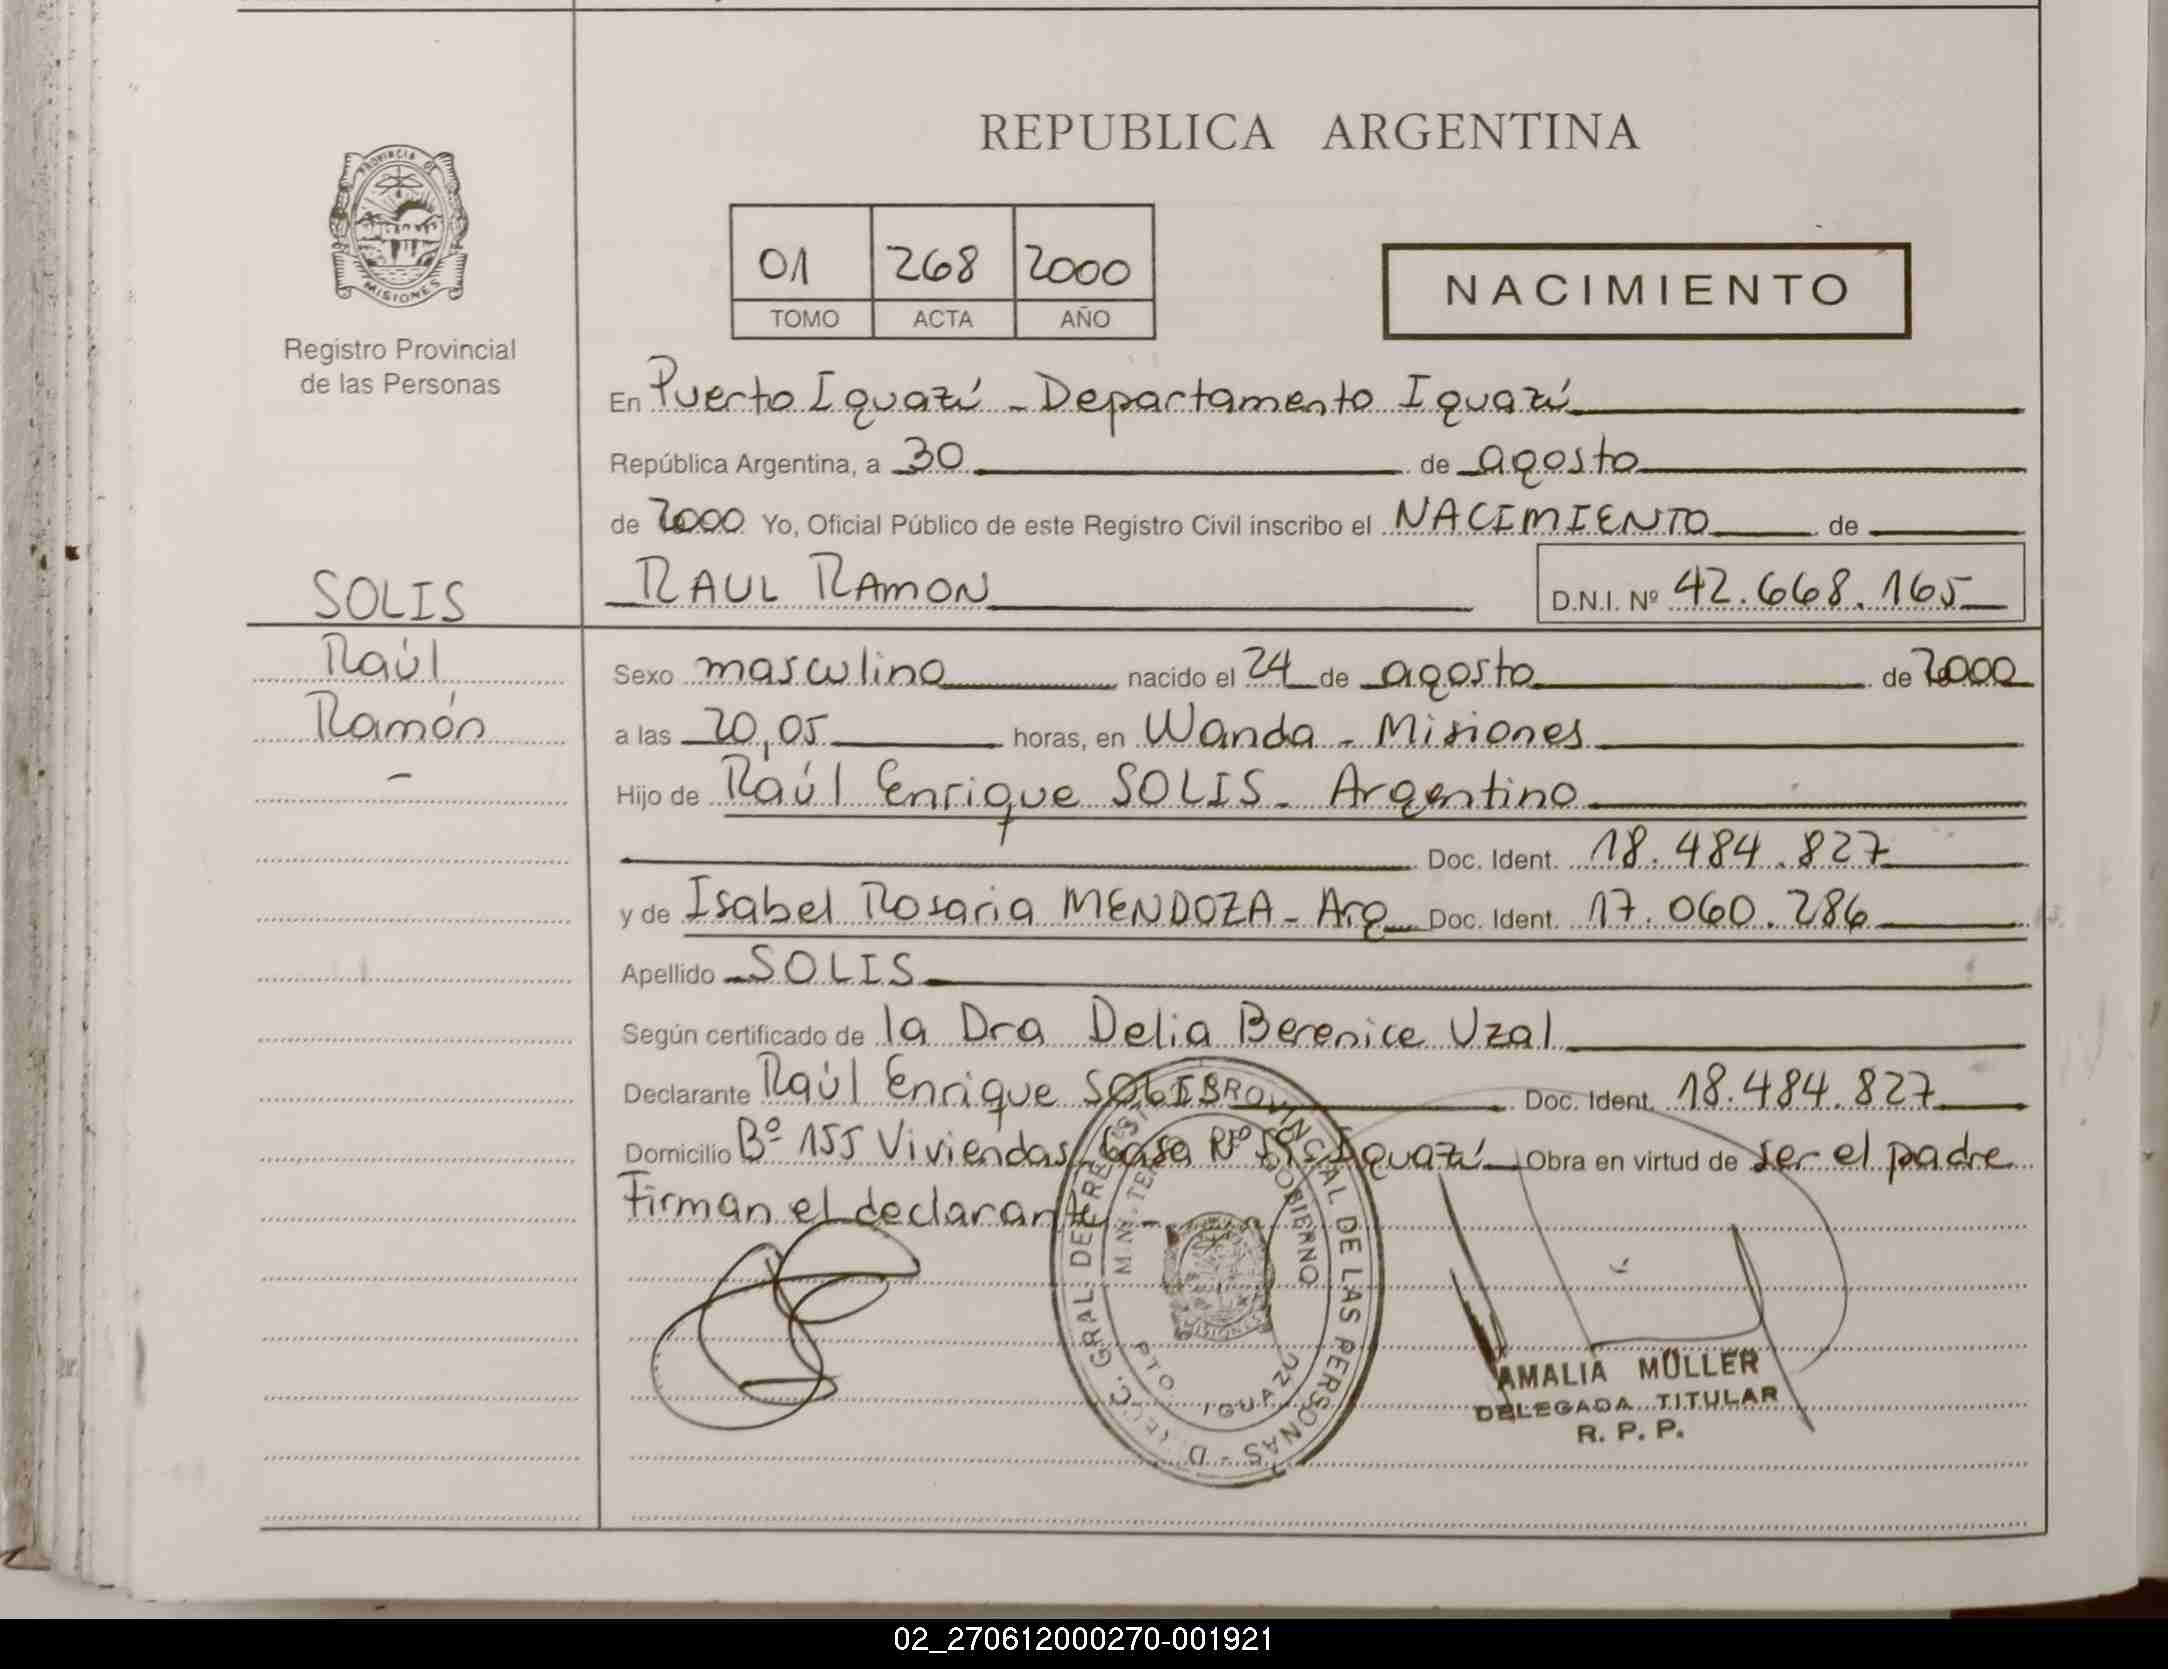 REPUBLICA ARGENTINA
PROVINCIA DE MISIONES
Registro Provincial
de las Personas
01 268 2000
TOMO ACTA AÑO
NACIMIENTO
En Puerto Iguazú - Departamento Iguazú
República Argentina, a 30 de agosto
de 2000 Yo, Oficial Público de este Registro Civil inscribo el NACIMIENTO de
SOLIS
RAUL RAMON D.N.I. Nº 42.668.165
Raúl
Sexo masculino nacido el 24 de agosto de 2000
Ramón
a las 20,05 horas, en Wanda - Misiones
-
Hijo de Raúl Enrique SOLIS - Argentino
Doc. Ident. 18.484.827
y de Isabel Rosaria MENDOZA - Arg Doc. Ident. 17.060.286
Apellido SOLIS
Según certificado de la Dra Delia Berenice Uzal
Declarante Raúl Enrique SOLIS Doc. Ident. 18.484.827
Domicilio Bº 155 Viviendas Casa Nº Iguazú Obra en virtud de ser el padre
Firman el declarante -
PROVINCIAL DE LAS PERSONAS
GOBIERNO
PTO. IGUAZU
MISIONES
AMALIA MÜLLER
DELEGADA TITULAR
R. P. P.
02_270612000270-001921